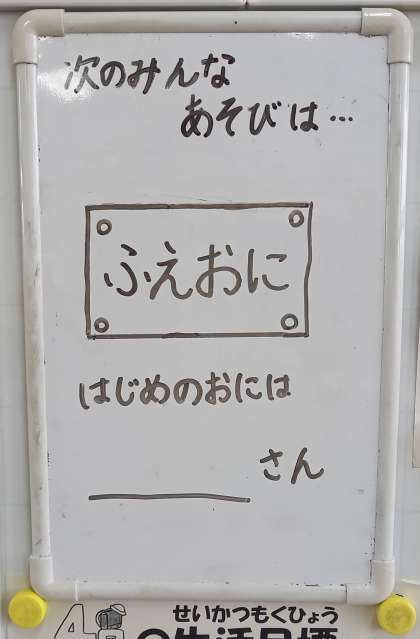 次のみんな
あそびは…
ふえおに
はじめのおには
さん
せいかつもくひょう